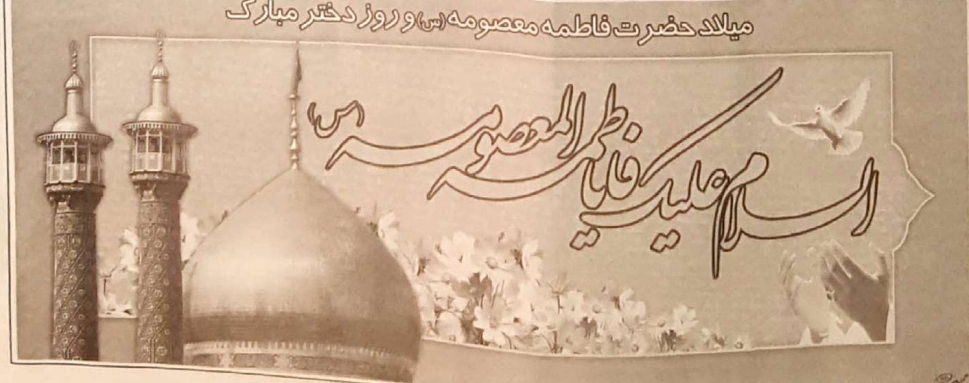 میلاد حضرت فاطمه معصومه (س) و روز دختر مبارک
السلام علیک یا فاطمه المعصومه (س)